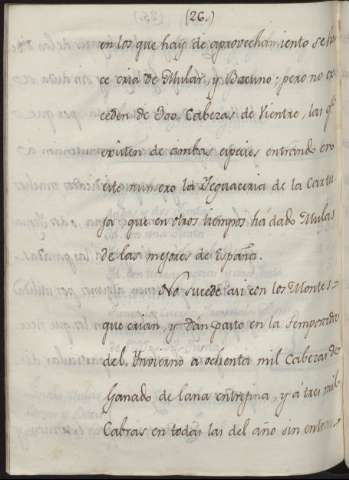 (26.)
en los que hay de aprovechamiento se ha
ce cria de Mular, y Bacuno; pero no ex
ceden de 300. Cabezas de Vientre, las qe.
existen de ambas especies entrando en
este numero la Yeguaceria de la Cartu
ja que en otros tiempos há dado Mulas
de las mejores de España.
No sucede asi con los Montes
que crian, y dan pasto en la temporada
del Ynvierno a ochenta mil Cabezas de
Ganado de lana entrefina, y á tres mil
Cabras en todas las del año sin entrar